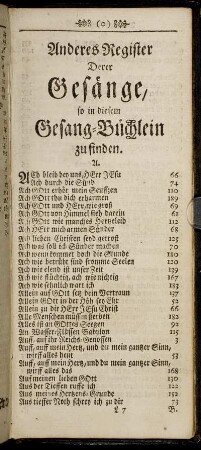 (o)
Anderes Register
Derer
Gesänge,
so in diesem
Gesang-Büchlein
zu finden.
A.
ACh bleib bey uns, HErr JEsu 66
Ach durch die Sünd 74
Ach GOtt erhör mein Seuffzen 110
Ach GOtt thu dich erbarmen 189
Ach GOtt und HErr, wie groß 69
Ach GOtt von Himmel sieh darein 61
Ach GOtt wie mancher Hertzeleid 112
Ach HErr mich armen Sünder 68
Ach lieben Christen seyd getrost 125
Ach was soll ich Sünder machen 70
Ach wenn kommet doch die Stunde 180
Ach wie betrübt sind fromme Seelen 120
Ach wie elend ist unser Zeit 139
Ach wie flüchtig, ach wie nichtig 167
Ach wie sehnlich wart ich 183
Allein auf GOtt setz dein Vertraun 127
Allein GOtt in der Höh sey Ehr 52
Allein zu dir HErr JEsu Christ 66
Alle Menschen müssen sterben 182
Alles ist an GOttes Seegen 92
An Wasser-Flüssen Babylon 115
Auff, auff ihr Reichs-Genossen 3
Auff, auff mein Hertz, und du mein gantzer Sinn,
wirff alles heut 53
Auff, auff mein Hertz, und du mein gantzer Sinn,
wirff alles das 168
Auf meinen lieben GOtt 130
Aus der Tieffen ruffe ich 122
Aus meines Hertzens-Grunde 152
Aus tieffer Noth schrey ich zu dir 73
L 7 B.